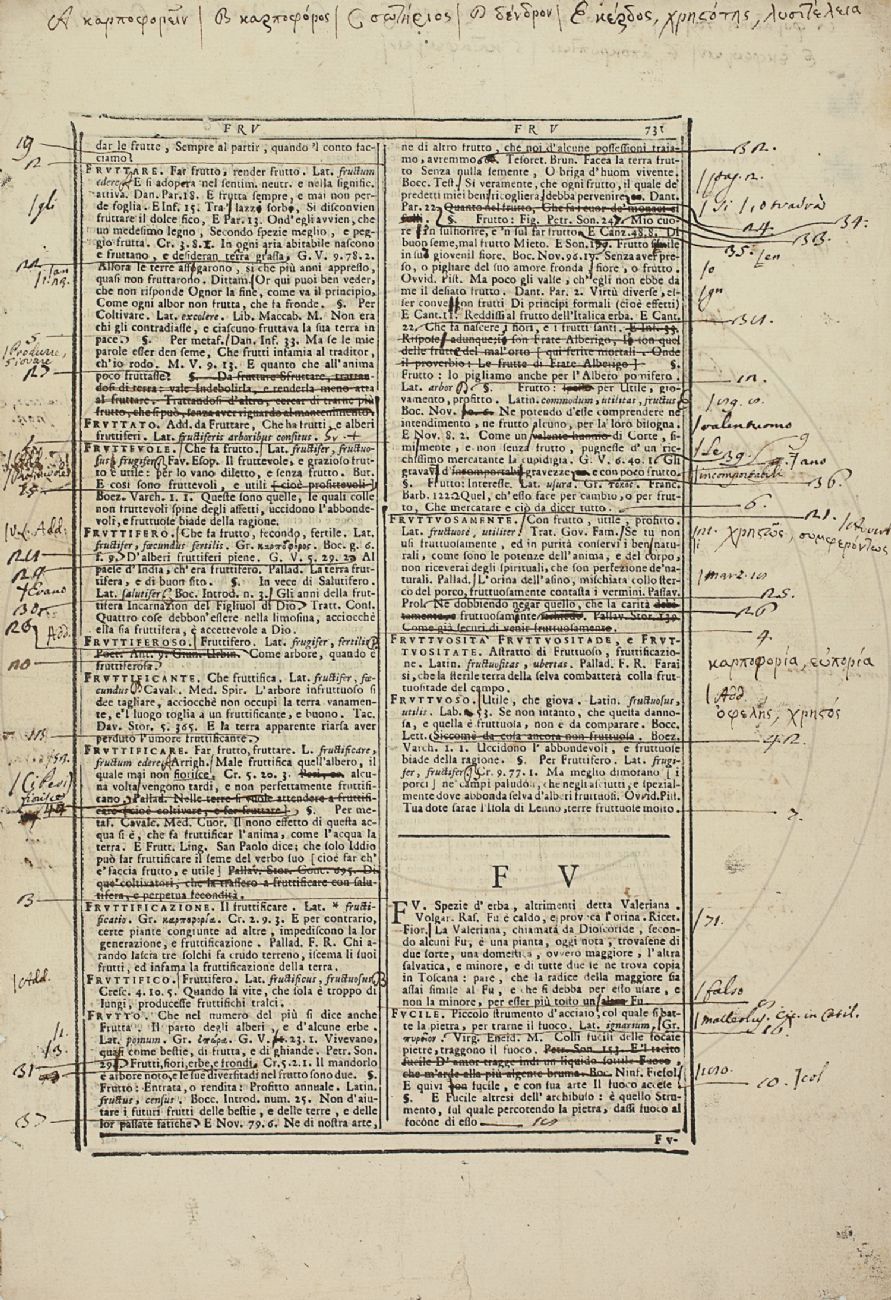 A καρποφορεῖν | B καρποφόρος | C σωτήριος | D δένδρον | E κέρδος, χρησότης, λυσιτέλεια
FRV
dar le frutte, Sempre al partir, quando 'l conto fac-
ciamo
FRVTTARE. Far frutto, render frutto. Lat. fructum
edere. E si adopera nel sentim. neutr. e nella signific.
attiva. Dan. Par. 18. E frutta sempre, e mai non per-
de foglia. E Inf. 15. Tra lazzi sorbi, Si disconvien
fruttare il dolce fico, E Par. 13. Ond'egli avvien, che
un medesimo legno, Secondo spezie meglio, e peg-
gio frutta. Cr. 3. 8. 1. In ogni aria abitabile nascono
e fruttano, e desideran terra grassa, G. V. 9. 78. 2.
Allora le terre assegarono, si che più anni appresso,
quasi non fruttarono. Dittam. Or qui puoi ben veder,
che non risponde Ognor la fine, come va il principio,
Come ogni albor non frutta, che fa fronde. §. Per
Coltivare. Lat. excolere. Lib. Maccab. M. Non era
chi gli contradiasse, e ciascuno fruttava la sua terra in
pace. §. Per metaf. Dan. Inf. 33. Ma se le mie
parole esser den seme, Che frutti infamia al traditor,
ch'io rodo. M. V. 9. 13. E quanto che all'anima
poco fruttasse §. Da fruttare Sfruttare, trattan-
dosi di terra: vale Indebolirla, e renderla meno atta
al fruttare. Trattandosi d'altro, cercar di trarne più
frutto, che si può, senza aver riguardo al mantenimento.
FRVTTATO. Add. da Fruttare, Che ha frutti, e alberi
fruttiferi. Lat. fructiferis arboribus consitus.
FRVTTEVOLE. Che fa frutto. Lat. fructifer, fructuo-
sus, frugifer. Fav. Esop. Il fruttevole, e grazioso frut-
to è utile: per lo vano diletto, e senza frutto. But.
E così sono fruttevoli, e utili [cioè profittevoli]
Boez. Varch. 1. 1. Queste sono quelle, le quali colle
non fruttevoli spine degli affetti, uccidono l'abbonde-
voli, e fruttuose biade della ragione.
FRVTTIFERO. Che fa frutto, fecondo, fertile. Lat.
fructifer, fœcundus fertilis. Gr. καρποφόρος. Boc. g. 6.
f. 9. D'alberi fruttiferi piene. G. V. 5. 29. 2. Al
paese d'India, ch'era fruttifero. Pallad. La terra frut-
tifera, e di buon sito. §. In vece di Salutifero.
Lat. salutifer. Boc. Introd. n. 3. Gli anni della frut-
tifera Incarnazion del Figliuol di Dio. Tratt. Cons.
Quattro cose debbon'essere nella limosina, acciocchè
ella sia fruttifera, è accettevole a Dio.
FRVTTIFEROSO. Fruttifero. Lat. frugifer, fertilis.
Poet. Ant. 9. Giun. Urbin. Come arbore, quando è
fruttiferosa.
FRVTTIFICANTE. Che fruttifica. Lat. fructifer, fœ-
cundus. Caval. Med. Spir. L'arbore infruttuoso si
dee tagliare, acciocchè non occupi la terra vanamen-
te, e 'l luogo toglia a un fruttificante, e buono. Tac.
Dav. Stor. 5. 365. E la terra apparente riarsa aver
perduto l'umore fruttificante.
FRVTTIFICARE. Far frutto, fruttare. L. fructificare,
fructum edere. Arrigh. Male fruttifica quell'albero, il
quale mai non fiorisce. Cr. 5. 20. 3. Peri, es. alcu-
na volta vengono tardi, e non perfettamente fruttifi-
cano, Pallad. Nelle terre si vuole attendere a fruttifi-
care [cioè coltivare, e far fruttare]. §. Per me-
taf. Cavalc. Med. Cuor. Il nono effetto di questa ac-
qua si è, che fa fruttificar l'anima, come l'acqua la
terra. E Frutt. Ling. San Paolo dice, che solo Iddio
può far fruttificare il seme del verbo suo [cioè far ch'
e' faccia frutto, e utile] Pallav. Stor. Conc. 695. Di
que' coltivatori, che la trassero a fruttificare con salu-
tifera, e perpetua fecondità.
FRVTTIFICAZIONE. Il fruttificare. Lat. * fructi-
ficatio. Gr. καρποφορία. Cr. 2. 9. 3. E per contrario,
certe piante congiunte ad altre, impediscono la lor
generazione, e fruttificazione. Pallad. F. R. Chi a-
rando lascia tre solchi fa crudo terreno, iscema li suoi
frutti, ed infama la fruttificazione della terra.
FRVTTIFICO. Fruttifero. Lat. fructificus, fructuosus.
Cresc. 4. 10. 5. Quando la vite, che sola è troppo di
lungi, producesse fruttifichi tralci.
FRVTTO. Che nel numero del più si dice anche
Frutta. Il parto degli alberi, e d'alcune erbe.
Lat. pomum. Gr. ὀπώρα. G. V. 1. 23. 1. Vivevano,
quasi come bestie, di frutta, e di ghiande. Petr. Son.
29. Frutti, fiori, erbe, e frondi, Cr. 5. 2. 1. Il mandorlo
è arbore noto, e le sue diversitadi nel frutto sono due. §.
Frutto: Entrata, o rendita: Profitto annuale. Latin.
fructus, census. Bocc. Introd. num. 25. Non d'aiu-
tare i futuri frutti delle bestie, e delle terre, e delle
lor passate fatiche. E Nov. 79. 6. Ne di nostra arte,
FRV 731
ne di altro frutto, che noi d'alcune possessioni traia-
mo, avremmo. Tesoret. Brun. Facea la terra frut-
to Senza nulla semente, O briga d'huom vivente.
Bocc. Test. Si veramente, che ogni frutto, il quale de'
predetti miei beni ricogliera, debba pervenire. Dant.
Par. 22. Quanto del frutto, Che fa i cuor de' monaci sì
folli. §. Frutto: Fig. Petr. Son. 24. Mio cuo-
re in sul fiorire, e 'n sul far frutto. E Canz. 48. 8. Di
buon seme, mal frutto Mieto. E Son. Frutto senile
in sul giovenil fiore. Boc. Nov. 96. 17. Senza aver pre-
so, o pigliare del suo amore fronda, fiore, o frutto.
Ovvid. Pist. Ma poco gli valse, ch'egli non ebbe da
me il desiato frutto. Dant. Par. 2. Virtù diverse, es-
ser convegnon frutti Di principi formali (cioè effetti)
E Cant. 11. Reddissi al frutto dell'Italica erba. E Cant.
22. Che fa nascere i fiori, e i frutti santi. E Inf. 33.
Rispose adunque: io son Frate Alberigo, Io son quel
delle frutte del mal'orto [qui ferite mortali. Onde
il proverbio: Le frutte di Frate Alberigo] §.
Frutto: lo pigliamo anche per l'Albero pomifero.
Lat. arbor. §. Frutto: per Utile, gio-
vamento, profitto. Latin. commodum, utilitas, fructus
Boc. Nov. Ne potendo d'esse comprendere ne
intendimento, ne frutto alcuno, per la loro bisogna.
E Nov. 8. 2. Come un valente huomo di Corte, si-
milmente, e non senza frutto, pugnesse d'un ric-
chissimo mercatante la cupidigia. G. V. 6. 40. 1. Gli
gravava d'incomportabili gravezze, e con poco frutto.
§. Frutto: Interesse. Lat. usura. Gr. τόκος. Franc.
Barb. 122. Quel, ch'esso face per cambio, o per frut-
to, Che mercatare e ciò da dicer tutto.
FRVTTVOSAMENTE. Con frutto, utile, profitto.
Lat. fructuosè, utiliter. Trat. Gov. Fam. Se tu non
usi fruttuosamente, ed in purità conservi i beni natu-
rali, come sono le potenze dell'anima, e del corpo,
non riceverai degli spirituali, che son perfezione de' na-
turali. Pallad. L'orina dell'asino, mischiata collo ster-
co del porco, fruttuosamente contasta i vermini. Passav.
Prol. Ne dobbiendo negar quello, che la carità debi-
tamente, e fruttuosamente richiede. Pallav. Stor. 139.
Come già securi di venir fruttuosamente.
FRVTTVOSITÀ FRVTTVOSITADE, e FRVT-
TVOSITATE. Astratto di Fruttuoso, fruttificazio-
ne. Latin. fructuositas, ubertas. Pallad. F. R. Farai
si, che la sterile terra della selva combatterà colla frut-
tuositade del campo.
FRVTTVOSO. Utile, che giova. Latin. fructuosus,
utilis. Lab. 53. Se non intanto, che questa danno-
sa, e quella è fruttuosa, non è da comparare. Bocc.
Lett. Siccome da cosa ancora non fruttuosa. Boez.
Varch. 1. 1. Uccidono l'abbondevoli, e fruttuose
biade della ragione. §. Per Fruttifero. Lat. frugi-
fer, fructifer. Cr. 9. 77. 1. Ma meglio dimorano [i
porci] ne' campi paludosi, che negli asciutti, e spezial-
mente dove abbonda selva d'alberi fruttuosi. Ovvid. Pist.
Tua dote sarae l'Isola di Lenno, terre fruttuose molto.
F V
FV. Spezie d'erba, altrimenti detta Valeriana.
Volgar. Ras. Fu è caldo, e provoca l'orina. Ricet.
Fior. La Valeriana, chiamata da Dioscoride, secon-
do alcuni Fu, è una pianta, oggi nota, trovasene di
due sorte, una domestica, ovvero maggiore, l'altra
salvatica, e minore, e di tutte due se ne trova copia
in Toscana: pare, che la radice della maggiore sia
assai simile al Fu, e che si debba per esso usare, e
non la minore, per esser più tosto un falso Fu.
FVCILE. Piccolo strumento d'acciaio, col quale si bat-
te la pietra, per trarne il fuoco. Lat. igniarium, Gr.
πυρεῖον. Virg. Eneid. M. Colli fucili delle focaie
pietre, traggono il fuoco. Petr. Son. 153. E 'l tacito
fucile D'amor tragge indi un liquido sottile Fuoco
che m'arde alla più algente bruma. Boc. Ninf. Fiesol.
E quivi con fucile, e con sua arte Il fuoco accese
§. E Fucile altresì dell'archibuso: è quello Stru-
mento, sul quale percotendo la pietra, dassi fuoco al
focone di esso
Fv-
19
gli
22
Produrre,
Giovare
Add.
fiorisce
Add.
31
37
32.
34.
24
33.
35.
valentuomo
39.
incomportabili
36
6.
21.
χρησῶς, συμφερόντως
25.
26
4.
καρποφορία, εὐπορία
Add.
ὀφελής, χρησός
42.
falso